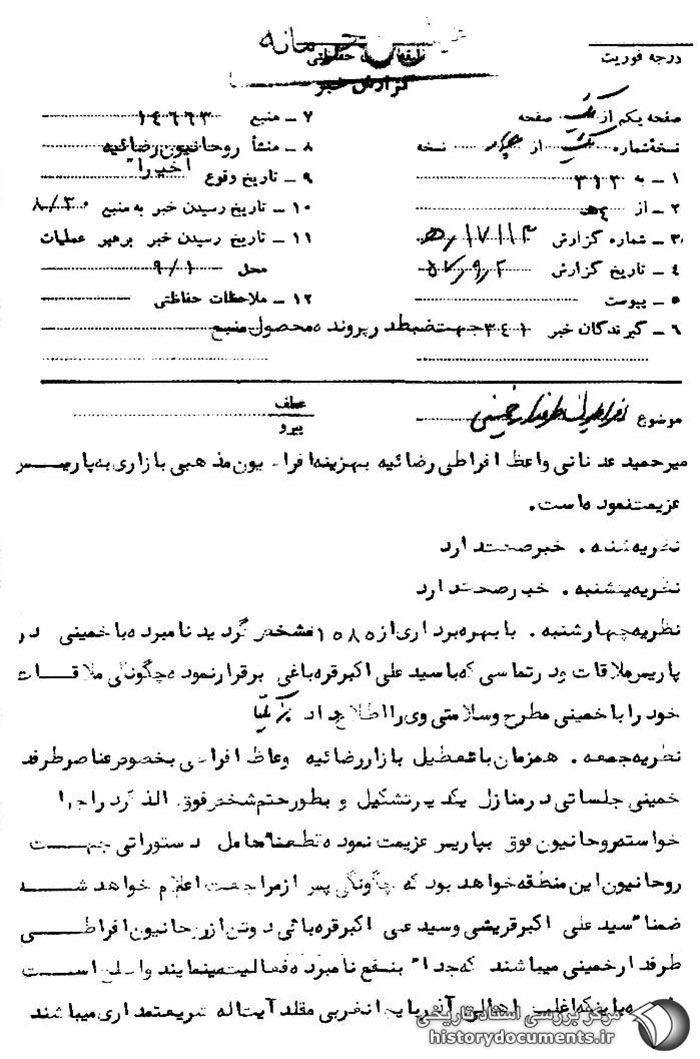 خیلی محرمانه
طبقه‌بندی حفاظتی
گزارش خبر
درجه فوریت
صفحه یکم از یک صفحه
نسخه شماره یک از چهار نسخه
۱ – به ۳۱۲
۲ – از ۴ه‍
۳ – شماره گزارش ۱۷۱۱۴/ه‍
۴ – تاریخ گزارش ۵۷/۹/۲
۵ – پیوست
۶ – گیرندگان خبر ۳۴۱ جهت ضبط در پرونده محصول منبع
۷ – منبع ۱۴۶۶۳
۸ – منشأ روحانیون رضائیه
۹ – تاریخ وقوع اخیرا"
۱۰ – تاریخ رسیدن خبر به منبع ۸/۳۰
۱۱ – تاریخ رسیدن خبر برهبر عملیات
محل ۹/۱
۱۲ – ملاحظات حفاظتی
موضوع افراطیون طرفدار خمینی
عطف
پیرو
میرحمید عدنانی واعظ افراطی رضائیه بهزینه افراطیون مذهبی بازاری به پاریس
عزیمت نموده است.
نظریه شنبه. خبر صحت دارد
نظریه یکشنبه. خبر صحت دارد
نظریه چهارشنبه. با بهره برداری از ۱۵۸۵ مشخص گردید نامبرده با خمینی در
پاریس ملاقات و در تماسی که با سید علی اکبر قره باغی برقرار نموده چگونگی ملاقات
خود را با خمینی مطرح و سلامتی وی را اطلاع داد
نظریه جمعه. همزمان با تعطیل بازار رضائیه وعاظ افراطی بخصوص عناصر طرفدار
خمینی جلساتی در منازل یکدیگر تشکیل و بطور حتم شخص فوق الذکر را بنا
خواسته روحانیون فوق بپاریس عزیمت نموده قطعا" حامل دستوراتی جهت
روحانیون این منطقه خواهد بود که چگونگی پس از مراجعت اعلام خواهد شد
ضمنا" سید علی اکبر قریشی و سید علی اکبر قره باغی دو تن از روحانیون افراطی
طرفدار خمینی میباشند که جدا" بنفع نامبرده فعالیت مینمایند
باینکه اغلب اهالی آذربایجانغربی مقلد آیت اله شریعتمداری میباشند
مرکز بررسی اسناد تاریخی
historydocuments.ir